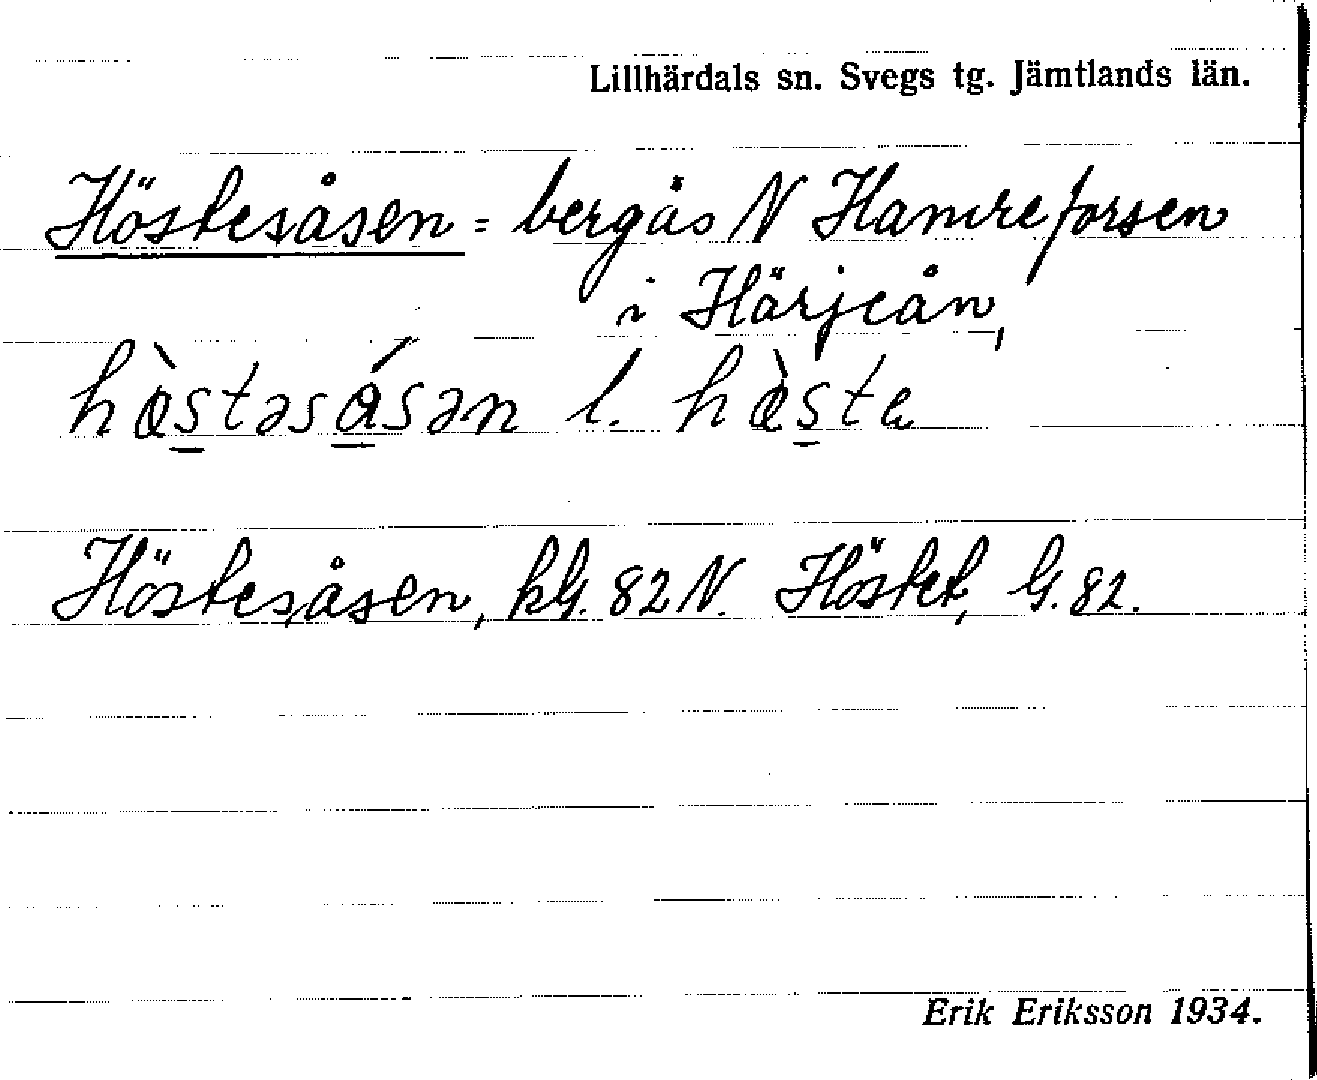 Lillhärdals sn. Svegs tg. Jämtlands län.
Höstesåsen = bergås N Hamreforsen
i Härjeån,
hæ̀stəsåsən l. hæ̀sta
Höstesåsen, kG. 82 N. Höstet, G. 82.
Erik Eriksson 1934.